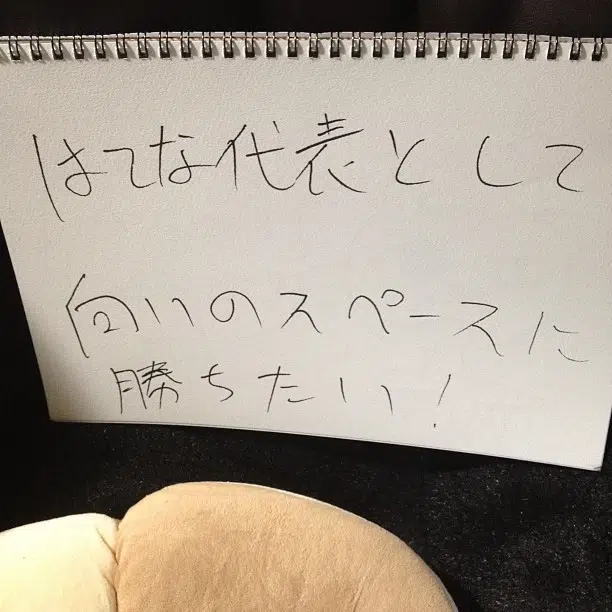 はてな代表として
向いのスペースに
勝ちたい!